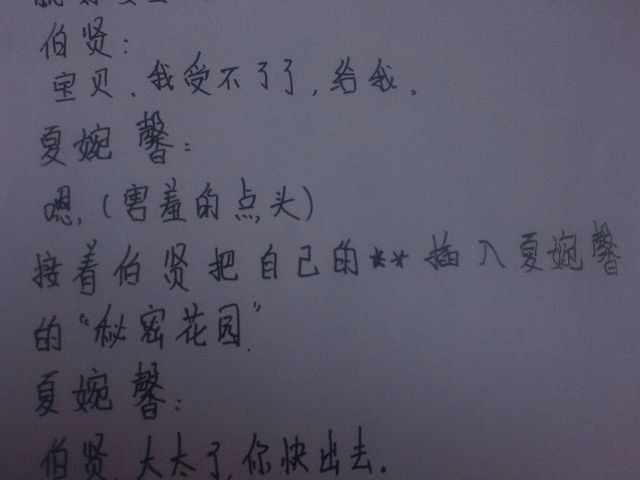 伯贤：
宝贝、我受不了了，给我。
夏婉馨：
嗯，（害羞的点头）
接着伯贤把自己的**插入夏婉馨
的“秘密花园”
夏婉馨：
伯贤，太大了，你快出去。